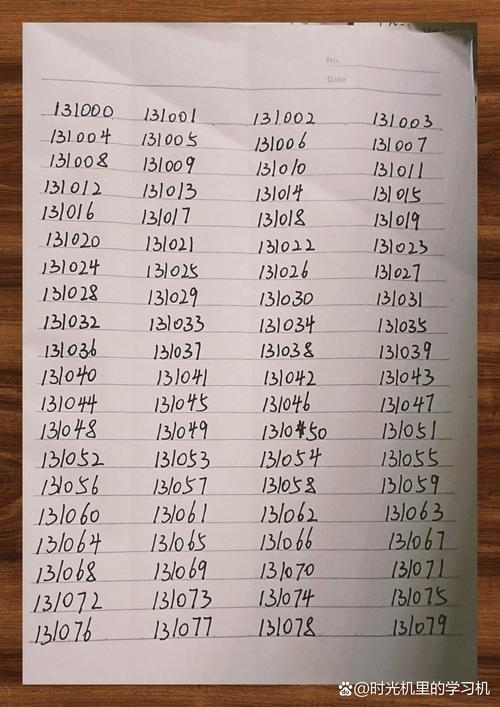 No.
Date
131000 131001 131002 131003
131004 131005 131006 131007
131008 131009 131010 131011
131012 131013 131014 131015
131016 131017 131018 131019
131020 131021 131022 131023
131024 131025 131026 131027
131028 131029 131030 131031
131032 131033 131034 131035
131036 131037 131038 131039
131040 131041 131042 131043
131044 131045 131046 131047
131048 131049 131050 131051
131052 131053 131054 131055
131056 131057 131058 131059
131060 131061 131062 131063
131064 131065 131066 131067
131068 131069 131070 131071
131072 131073 131074 131075
131076 131077 131078 131079
@时光机里的学习机